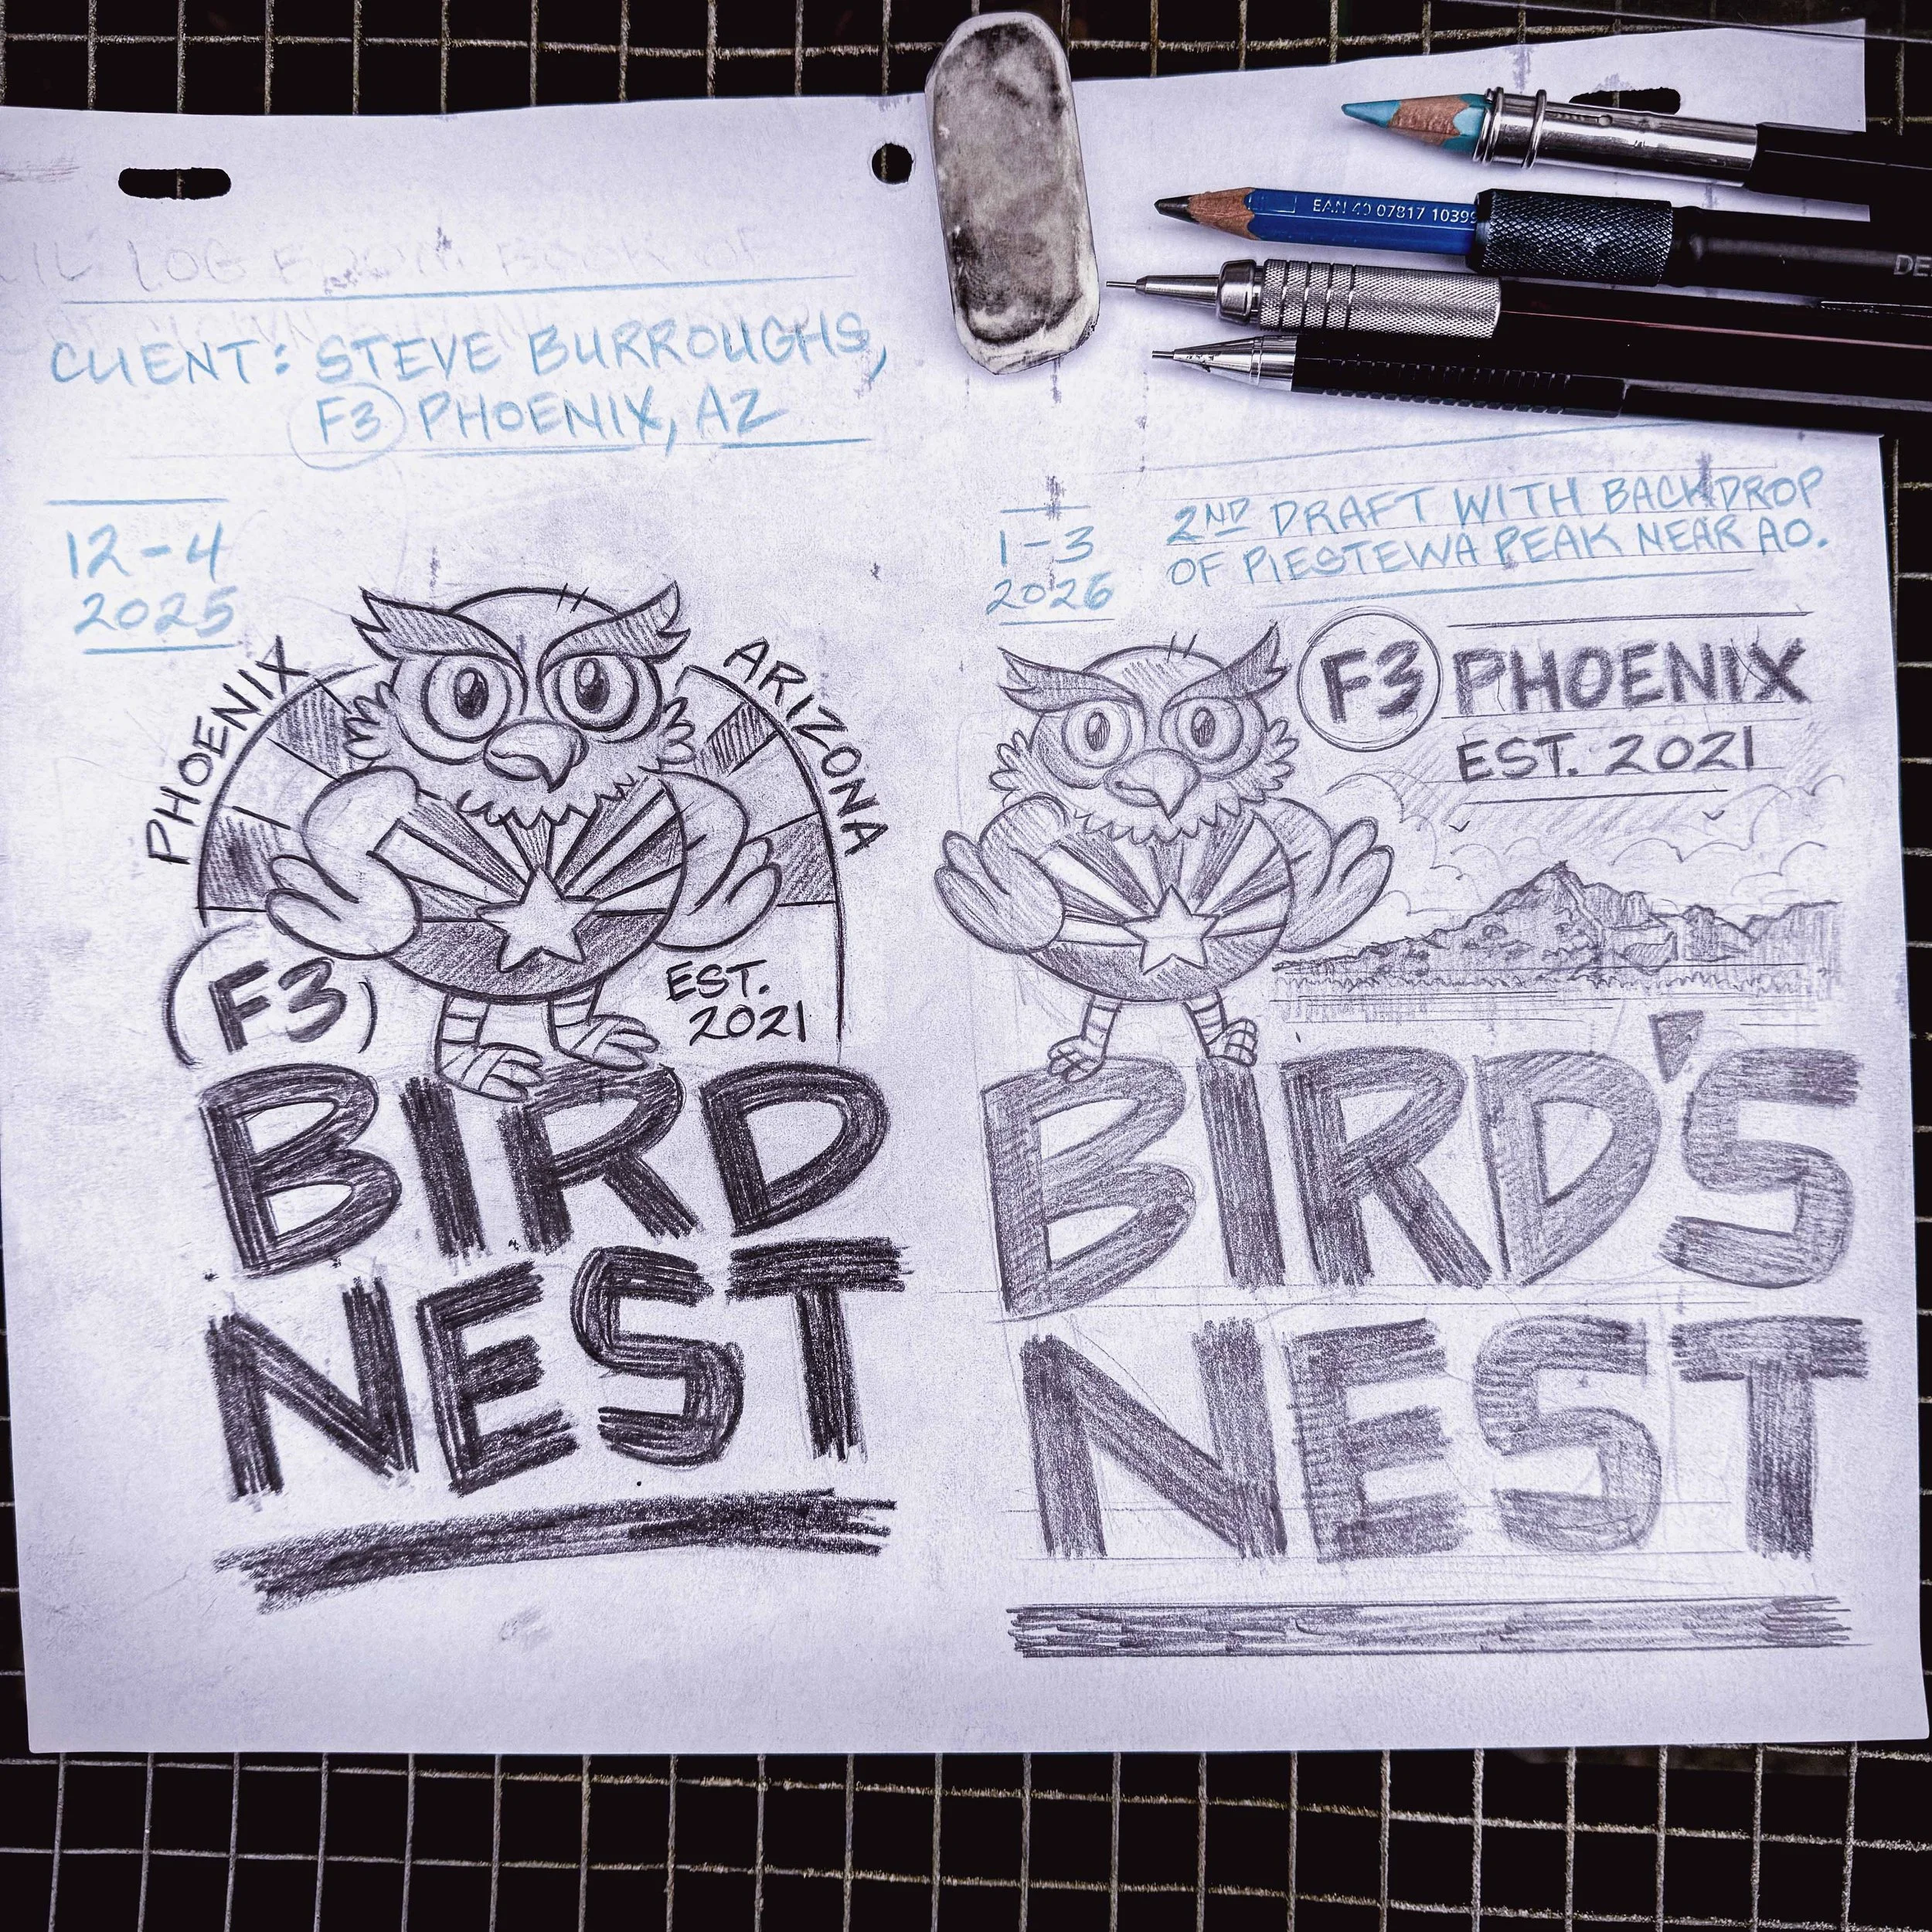 LOG FROM BOOK OF
CLIENT: STEVE BURROUGHS,
F3 PHOENIX, AZ
12-4
2025
PHOENIX
ARIZONA
F3
EST.
2021
BIRD
NEST
EAN 40 07817 10399
DE
1-3
2026
2ND DRAFT WITH BACKDROP
OF PIESTEWA PEAK NEAR AO.
F3 PHOENIX
EST. 2021
BIRD'S
NEST